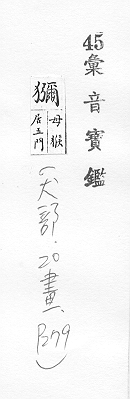 45彙音寶鑑
獼
母猴
居五門
(犬部.20畫. B79)